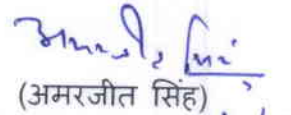 (अमरजीत सिंह)